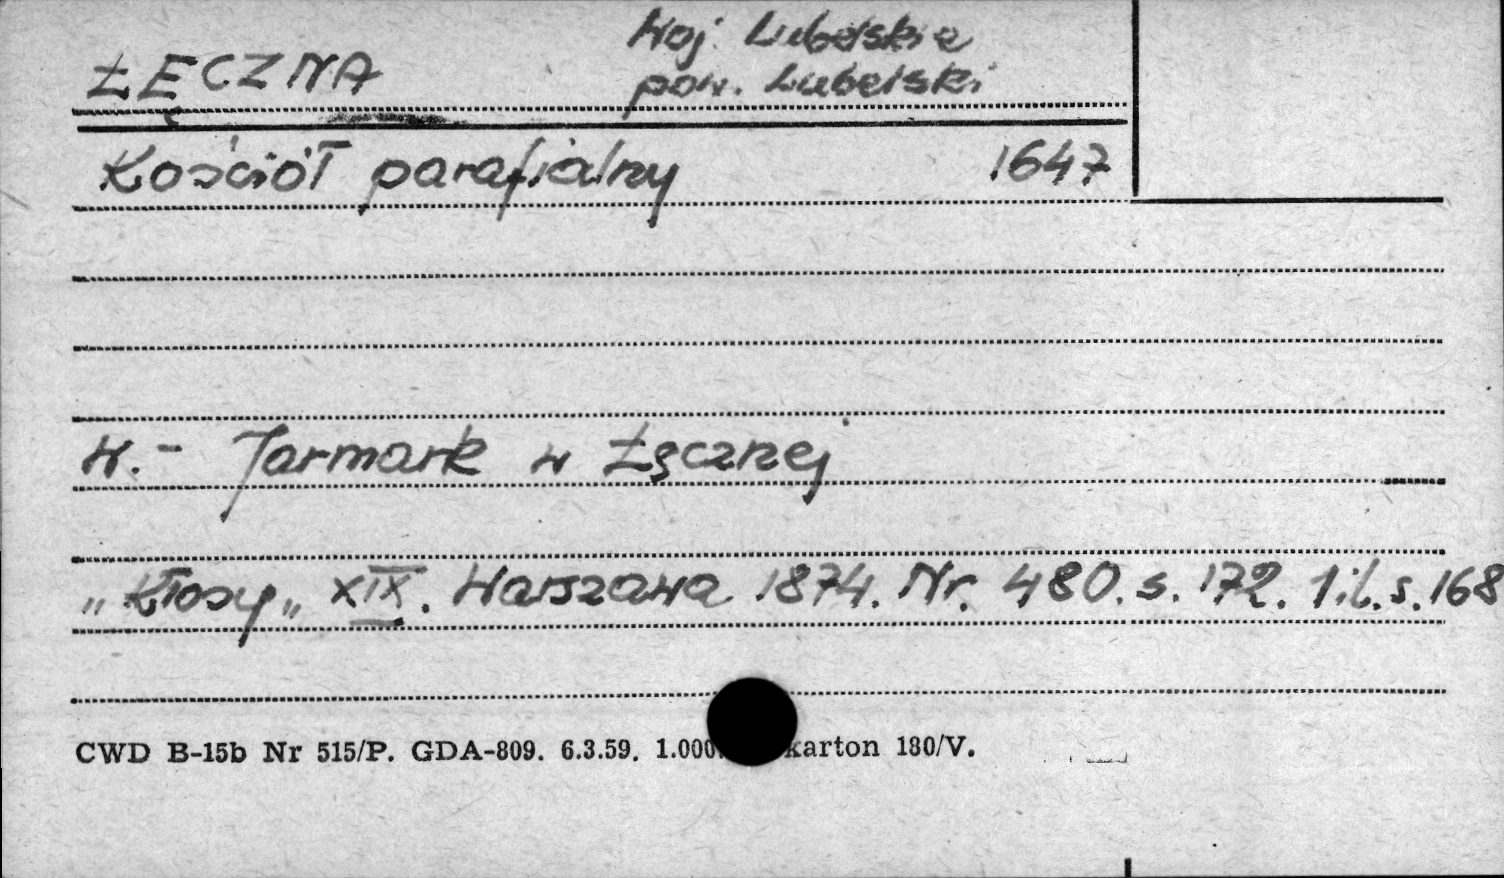 ŁĘCZNA
Woj. Lubelskie
pow. Lubelski
Kościół parafialny 1647
W. - Jarmark w Łęcznej
„Kłosy„ XIX. Warszawa 1874. Nr. 480. s. 172. 1 il. s. 168
CWD B-15b Nr 515/P. GDA-809. 6.3.59. 1.000. karton 180/V.